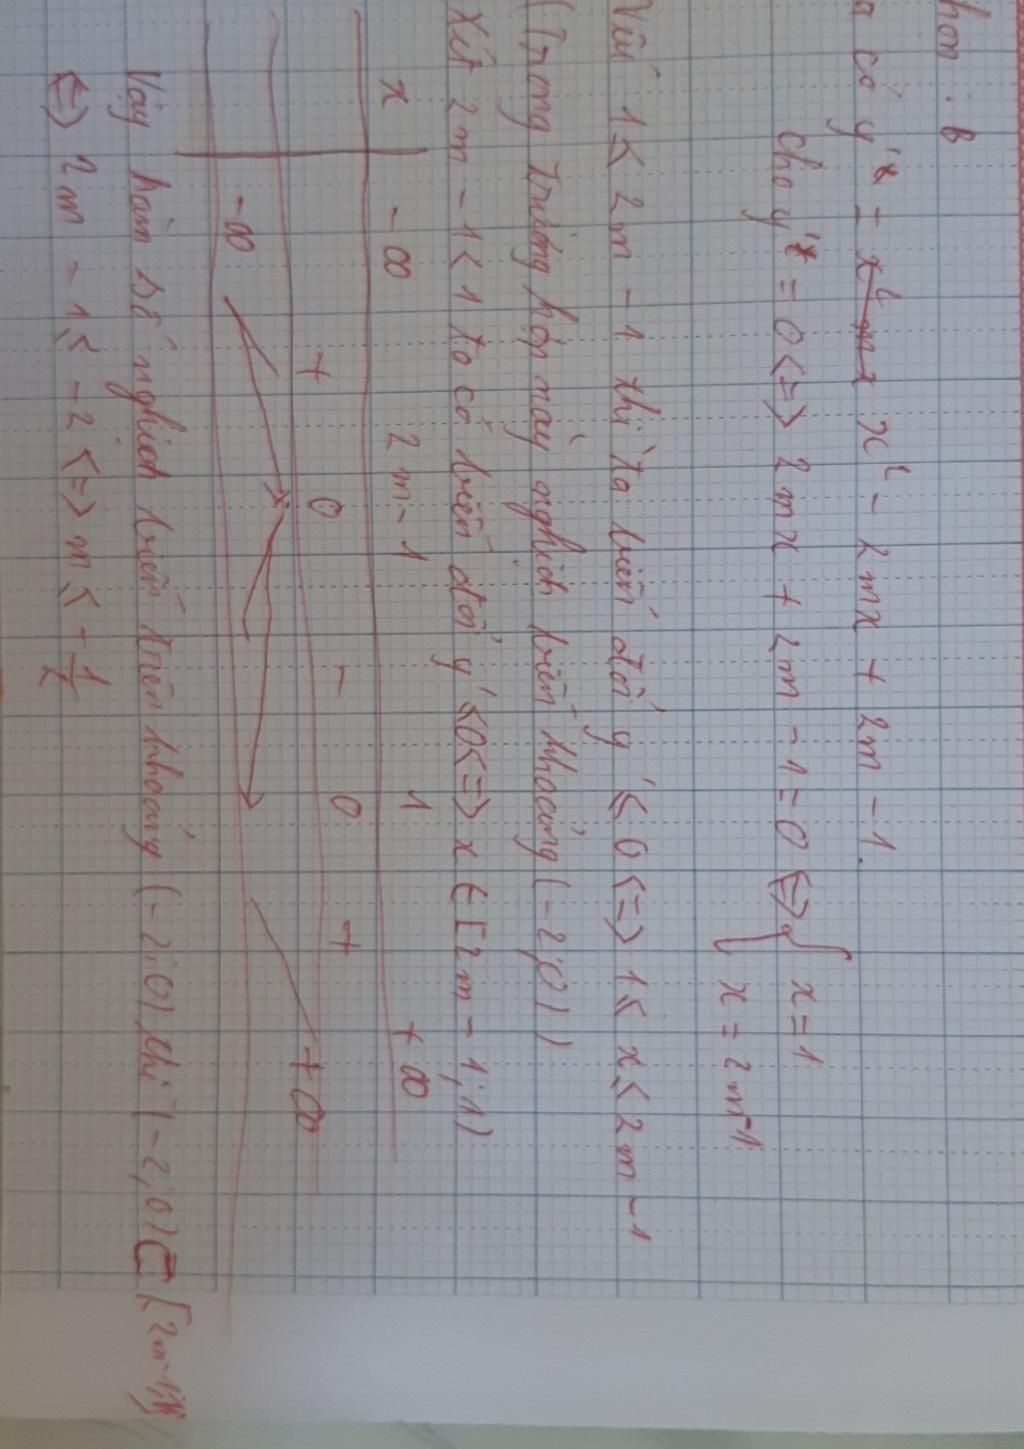 họn : B
a có y' = x² - 2mx + 2m - 1.
cho y' = 0 <=> 2mx + 2m - 1 = 0 <=> [ x = 1
x = 2m-1
Với 1 ≤ 2m - 1 thì ta biến đổi y' ≤ 0 <=> 1 ≤ x ≤ 2m - 1
(Trong trường hợp này nghịch biến khoảng (-2;0))
Xét 2m - 1 < 1 ta có biến đổi y' ≤ 0 <=> x ∈ [2m - 1; 1)
x -∞ 2m-1 1 +∞
+ 0 - 0 +
+∞
-∞
Vậy hàm số nghịch biến trên khoảng (-2;0) thì (-2;0) ⊂ [2m-1;1]
<=> 2m - 1 ≤ -2 <=> m ≤ -1/2